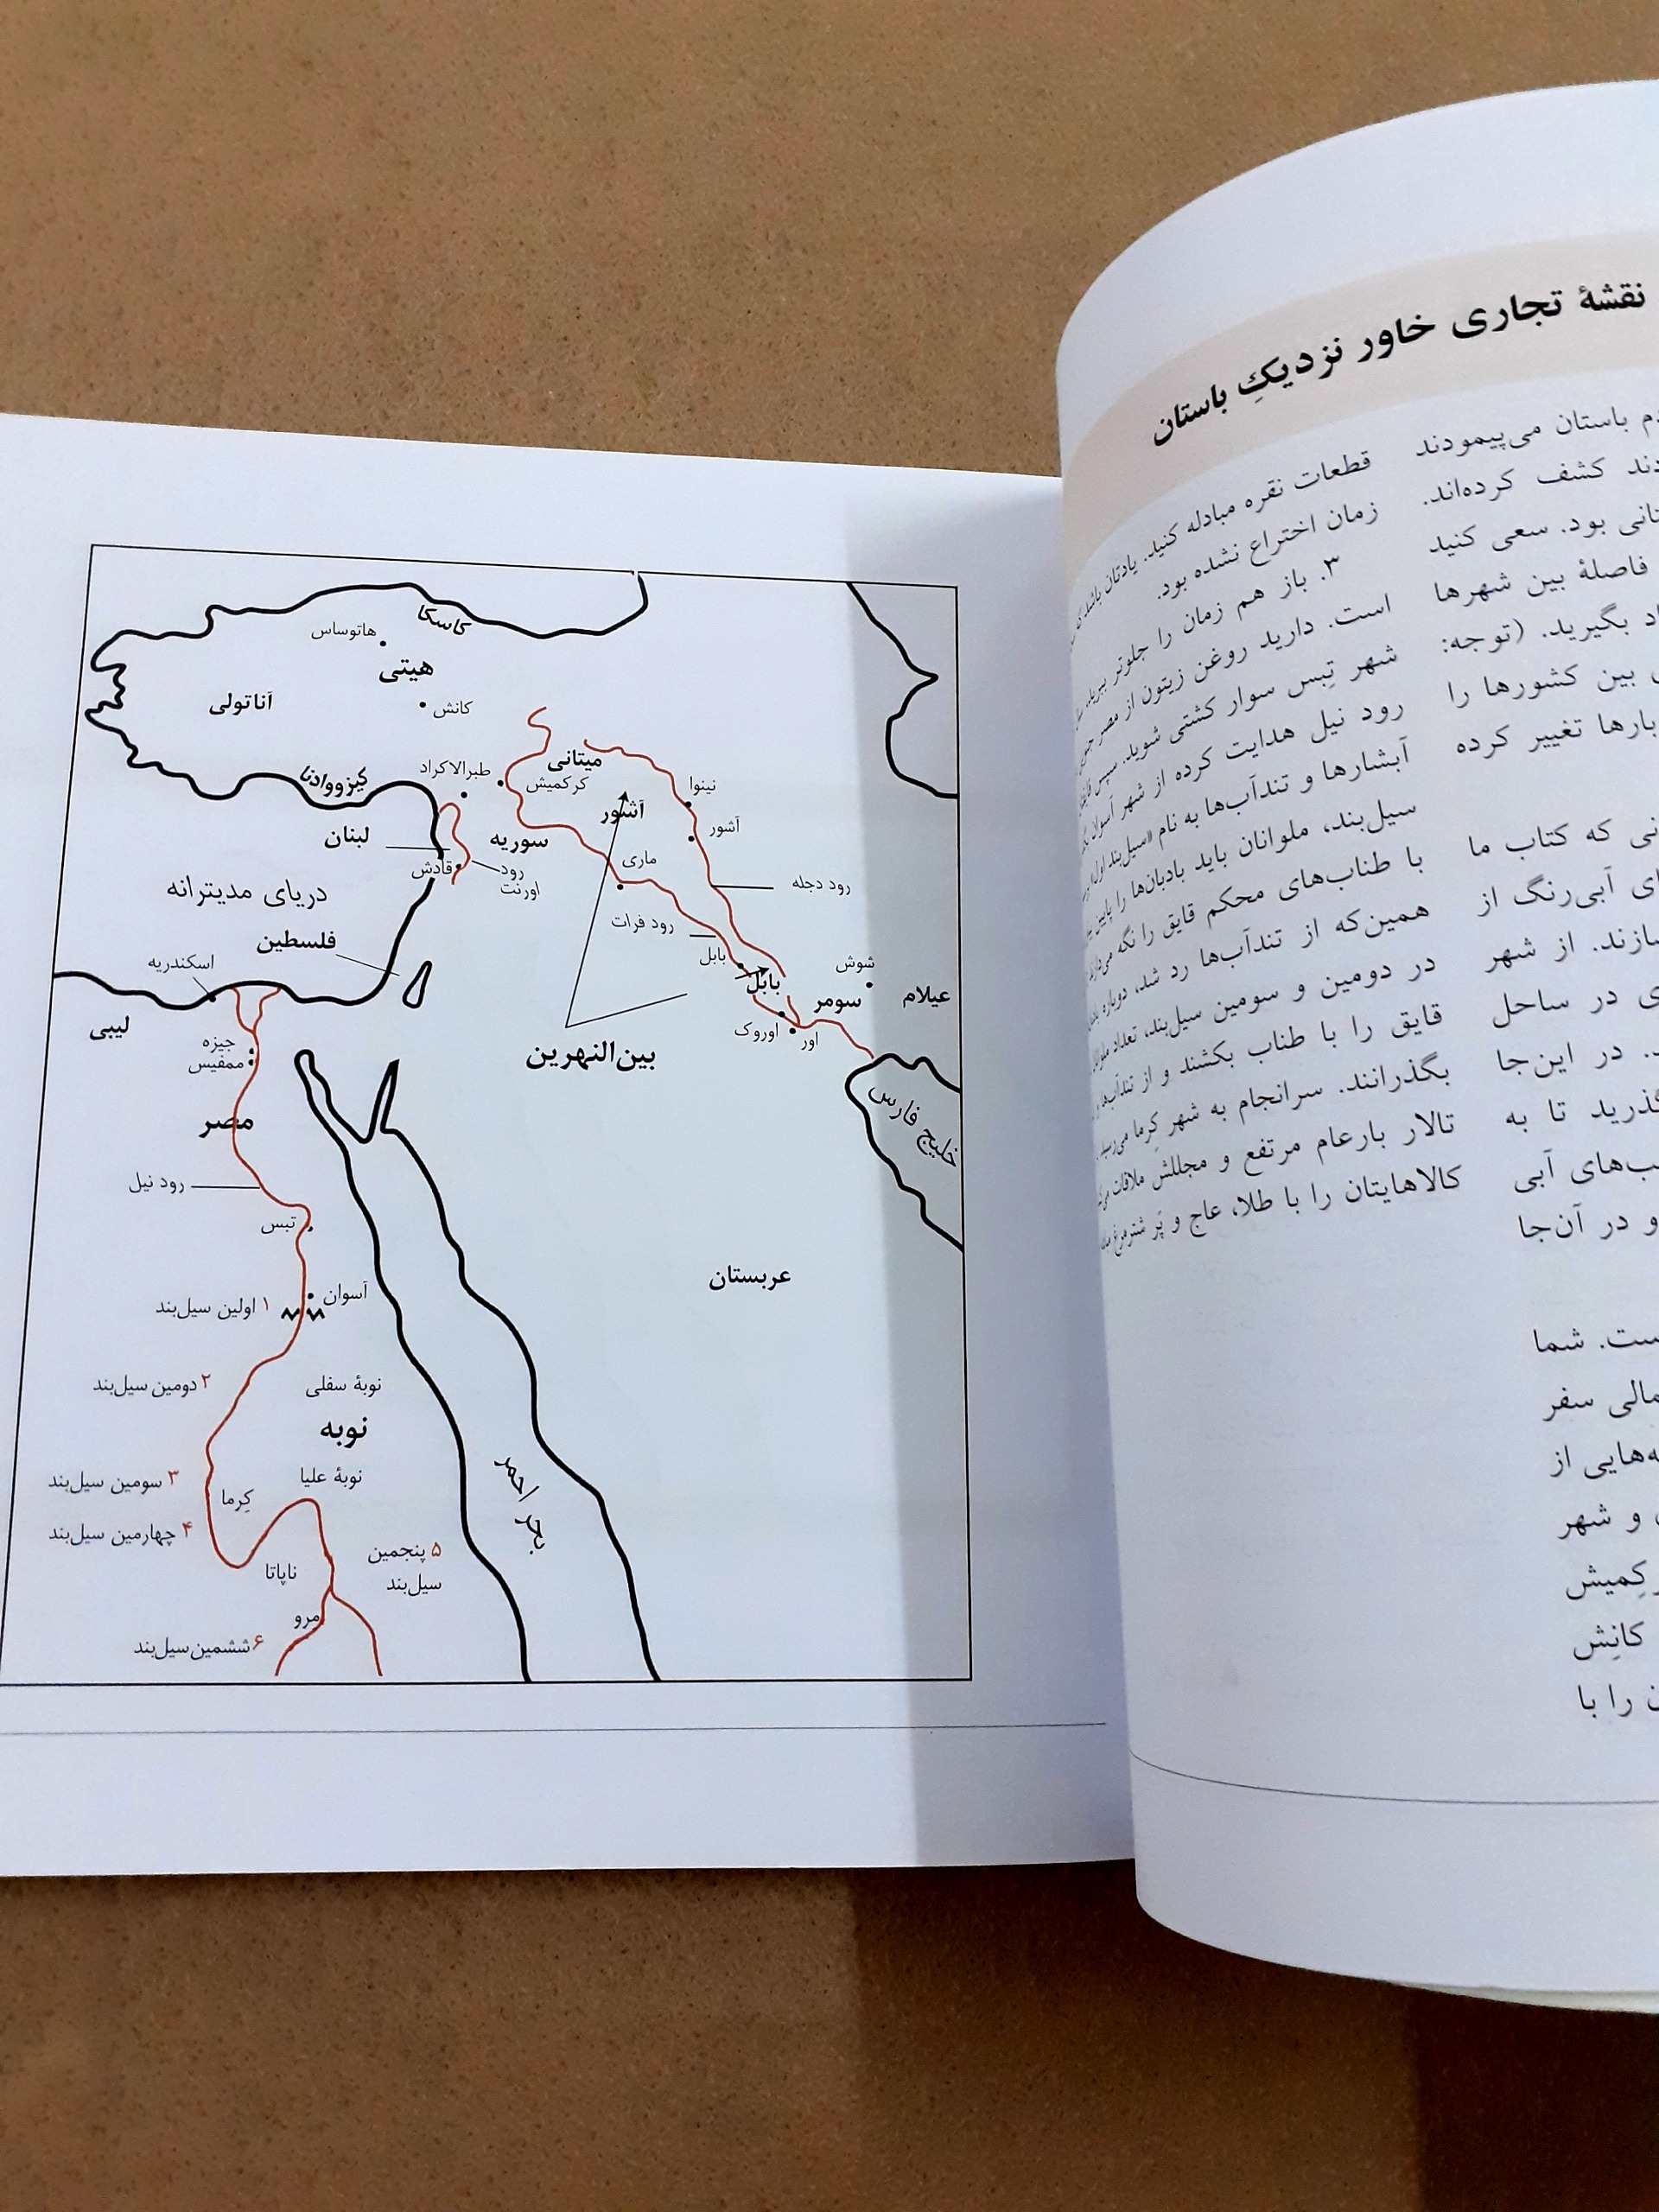 نقشهٔ تجاری خاور نزدیکِ باستان
باستان می‌پیمودند
کشف کرده‌اند.
بود. سعی کنید
فاصلهٔ بین شهرها
بگیرید. (توجه:
بین کشورها را
بارها تغییر کرده
که کتاب ما
آبی‌رنگ از
از شهر
در ساحل
در این‌جا
تا به
آبی
و در آن‌جا
شما
سفر
از
و شهر
کانِش
را با
قطعات نقره مبادله کنید. یادتان باشد
زمان اختراع نشده بود.
۳. باز هم زمان را جلوتر ببرید.
است. دارید روغن زیتون از مصر
شهر تِبس سوار کشتی شوید. سپس
رود نیل هدایت کرده از شهر آسوان
آبشارها و تندآب‌ها به نام «سیل‌بند اول»
سیل‌بند، ملوانان باید بادبان‌ها را پایین
با طناب‌های محکم قایق را نگه
همین‌که از تندآب‌ها رد شد، دوباره
در دومین و سومین سیل‌بند، تعداد
قایق را با طناب بکشند و از تندآب‌ها
بگذرانند. سرانجام به شهر کِرما می‌رسید.
تالار بارعام مرتفع و مجللش ملاقات
کالاهایتان را با طلا، عاج و پَر شترمرغ
کاسکا
هاتوساس
هیتی
آناتولی
کانش
میتانی
کیزووادنا
طبرالاکراد
کرکمیش
نینوا
آشور
آشور
لبنان
سوریه
ماری
قادش
رود
اورنت
رود دجله
دریای مدیترانه
رود فرات
فلسطین
بابل
شوش
اسکندریه
بابل
سومر
عیلام
لیبی
اوروک
اور
جیزه
ممفیس
بین‌النهرین
خلیج فارس
مصر
رود نیل
تبس
عربستان
آسوان
۱ اولین سیل‌بند
۲ دومین سیل‌بند
نوبهٔ سفلی
نوبه
نوبهٔ علیا
۳ سومین سیل‌بند
کِرما
بحر احمر
۴ چهارمین سیل‌بند
۵ پنجمین
سیل‌بند
ناپاتا
مرو
۶ ششمین سیل‌بند